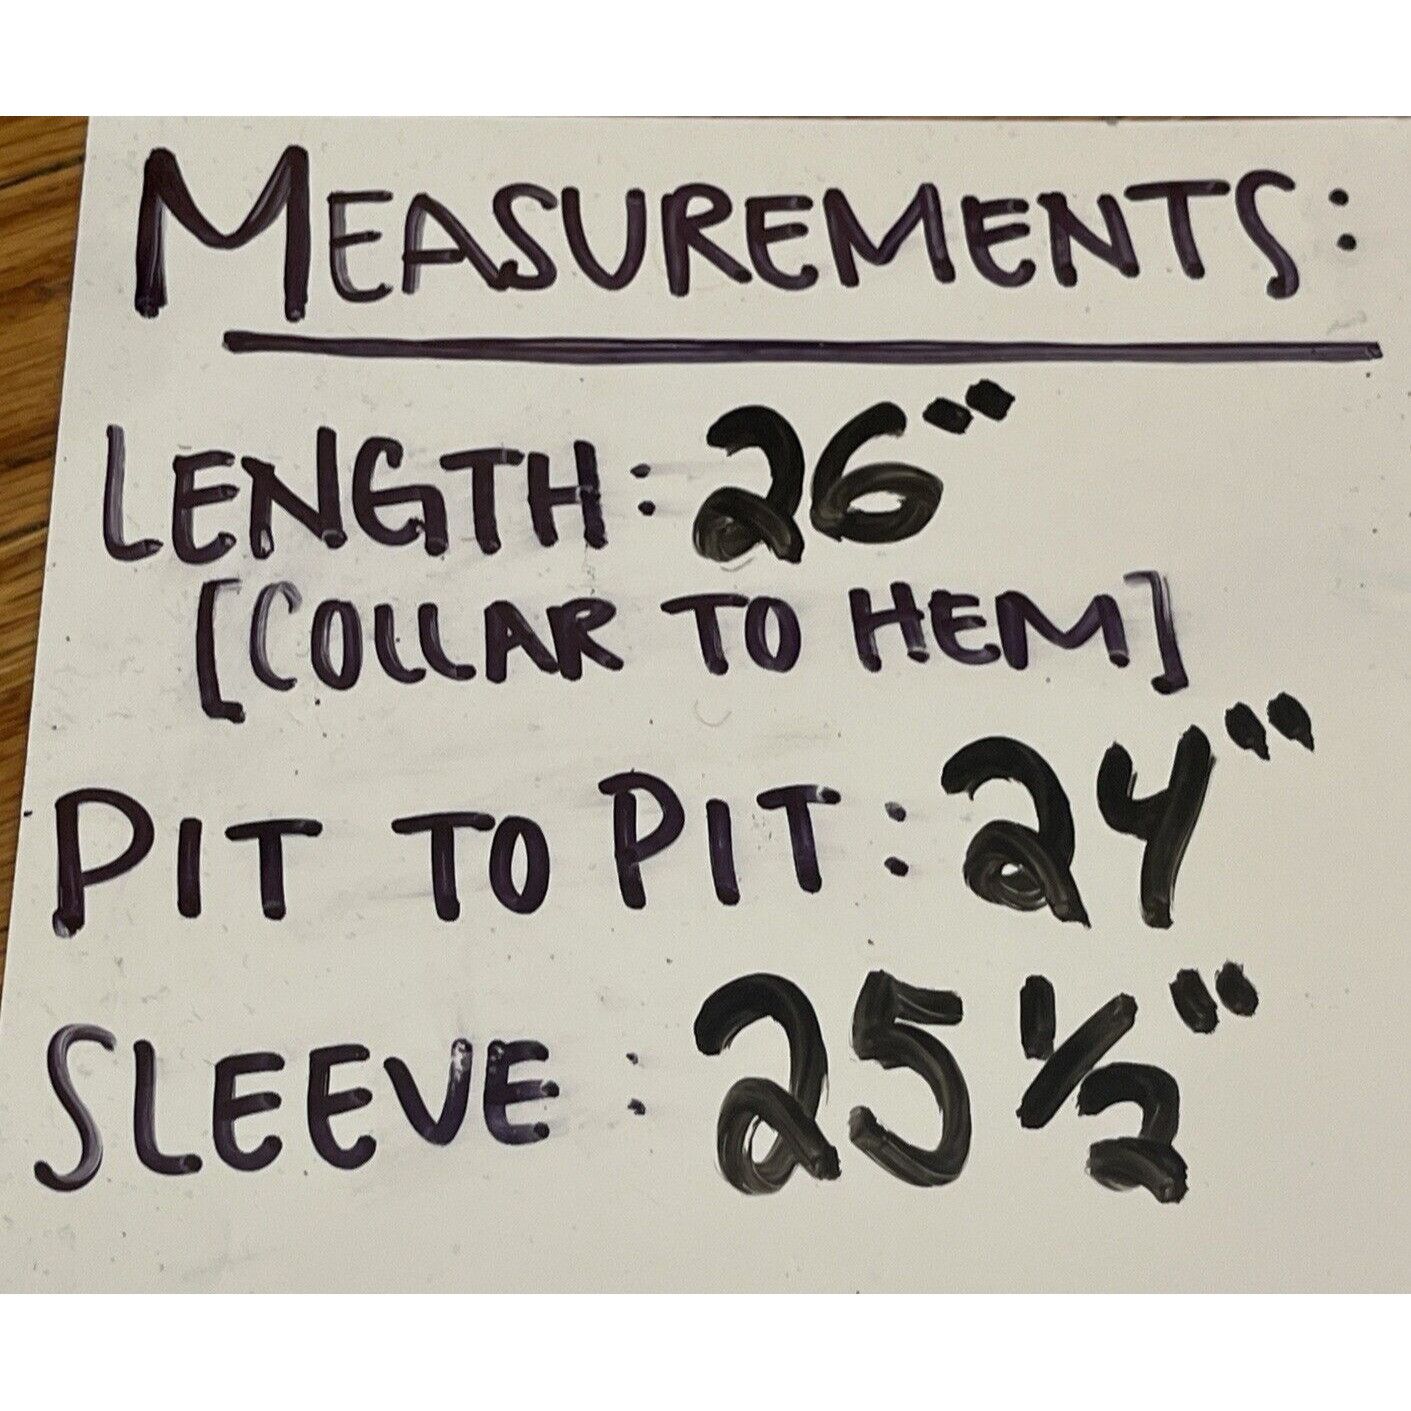 MEASUREMENTS:
LENGTH: 26"
[COLLAR TO HEM]
PIT TO PIT: 24"
SLEEVE: 25 1/2"